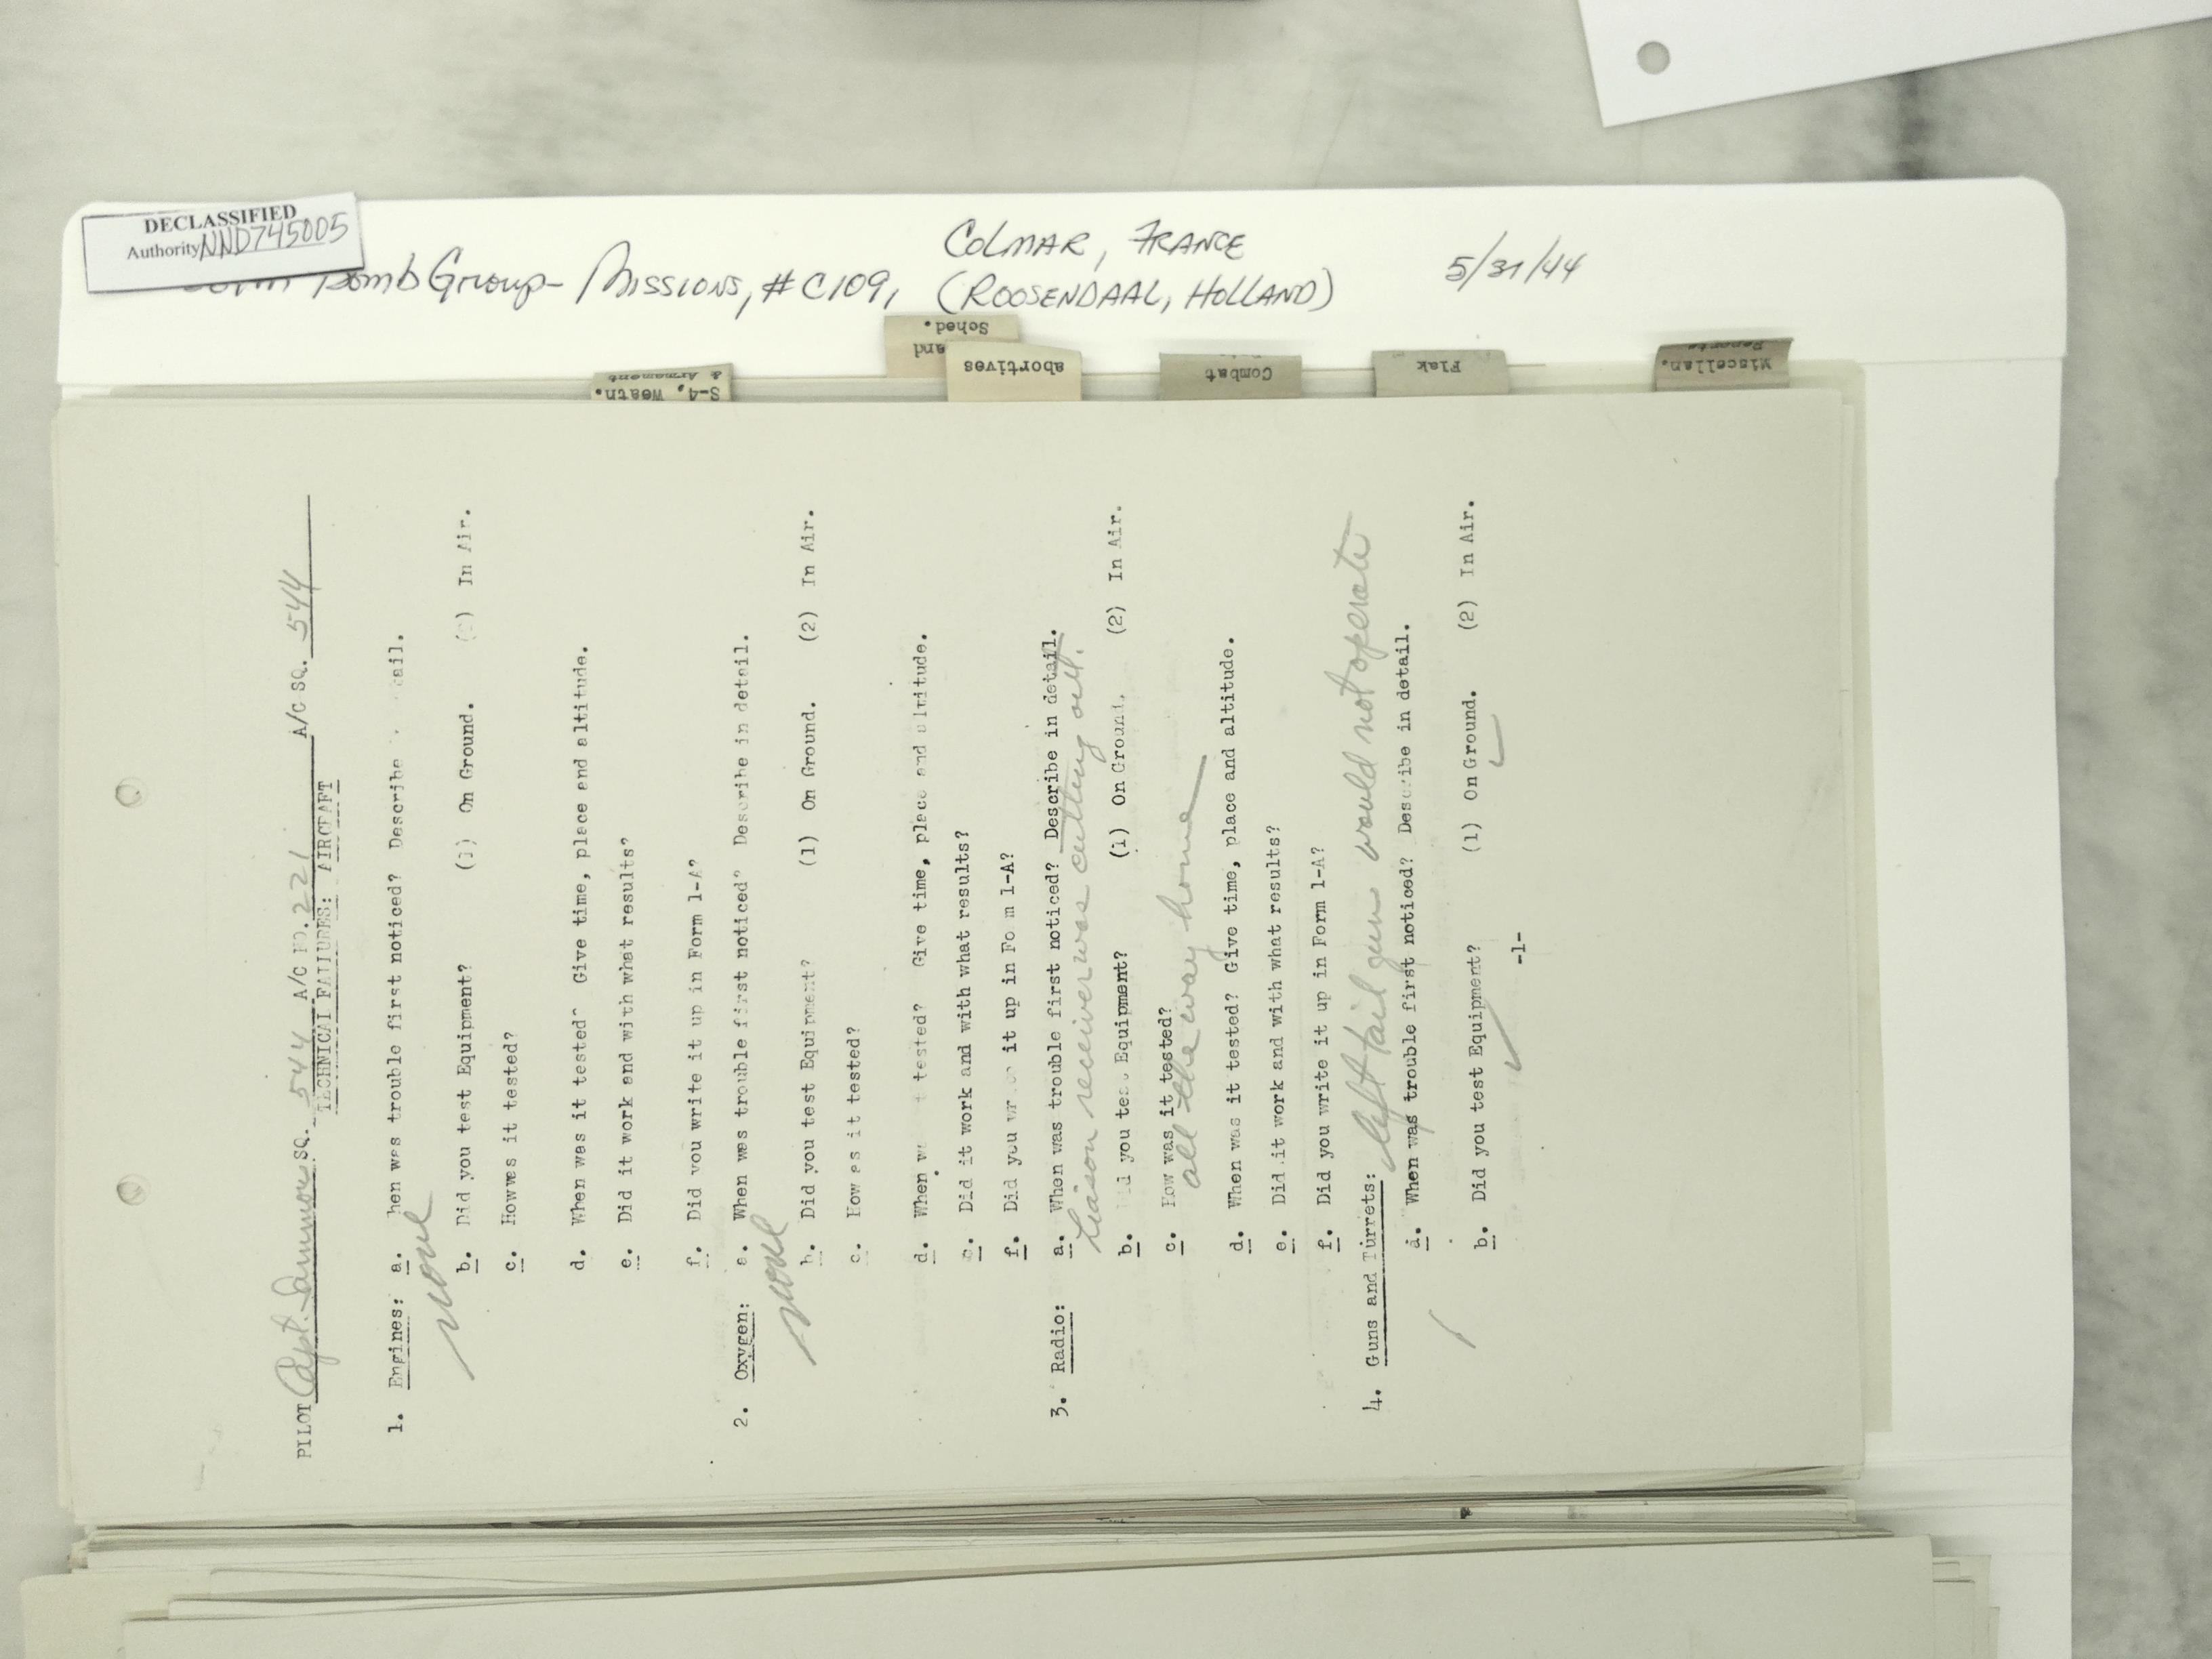 DECLASSIFIED
Authority NND745005
Bomb Group - Missions, #C109,
COLMAR, FRANCE
(ROOSENDAAL, HOLLAND)
5/31/44
S-4, Weath.
& Armament
and
Sched.
abortives
Combat
Flak
Miscellan.
Reports
PILOT Capt. SQ. 544 A/C NO. 221 A/C SQ. 544
TECHNICAL FAILURES: AIRCRAFT
1. Engines: a. hen was trouble first noticed? Describe
none
b. Did you test Equipment? (1) On Ground. (2) In Air.
c. Howwas it tested?
d. When was it tested? Give time, place and altitude.
e. Did it work and with what results?
f. Did you write it up in Form 1-A?
2. Oxygen: a. When was trouble first noticed? Describe in detail.
none
b. Did you test Equipment? (1) On Ground. (2) In Air.
c. How as it tested?
d. When tested? Give time, place and altitude.
e. Did it work and with what results?
f. Did you it up in Form 1-A?
3. Radio: a. When was trouble first noticed? Describe in detail.
Liaison receiver was cutting out.
b. you test Equipment? (1) On Ground. (2) In Air.
c. How was it tested?
all the way home
d. When was it tested? Give time, place and altitude.
e. Did it work and with what results?
f. Did you write it up in Form 1-A?
4. Guns and Turrets: left tail gun would not operate
a. When was trouble first noticed? Describe in detail.
b. Did you test Equipment? (1) On Ground. (2) In Air.
-1-